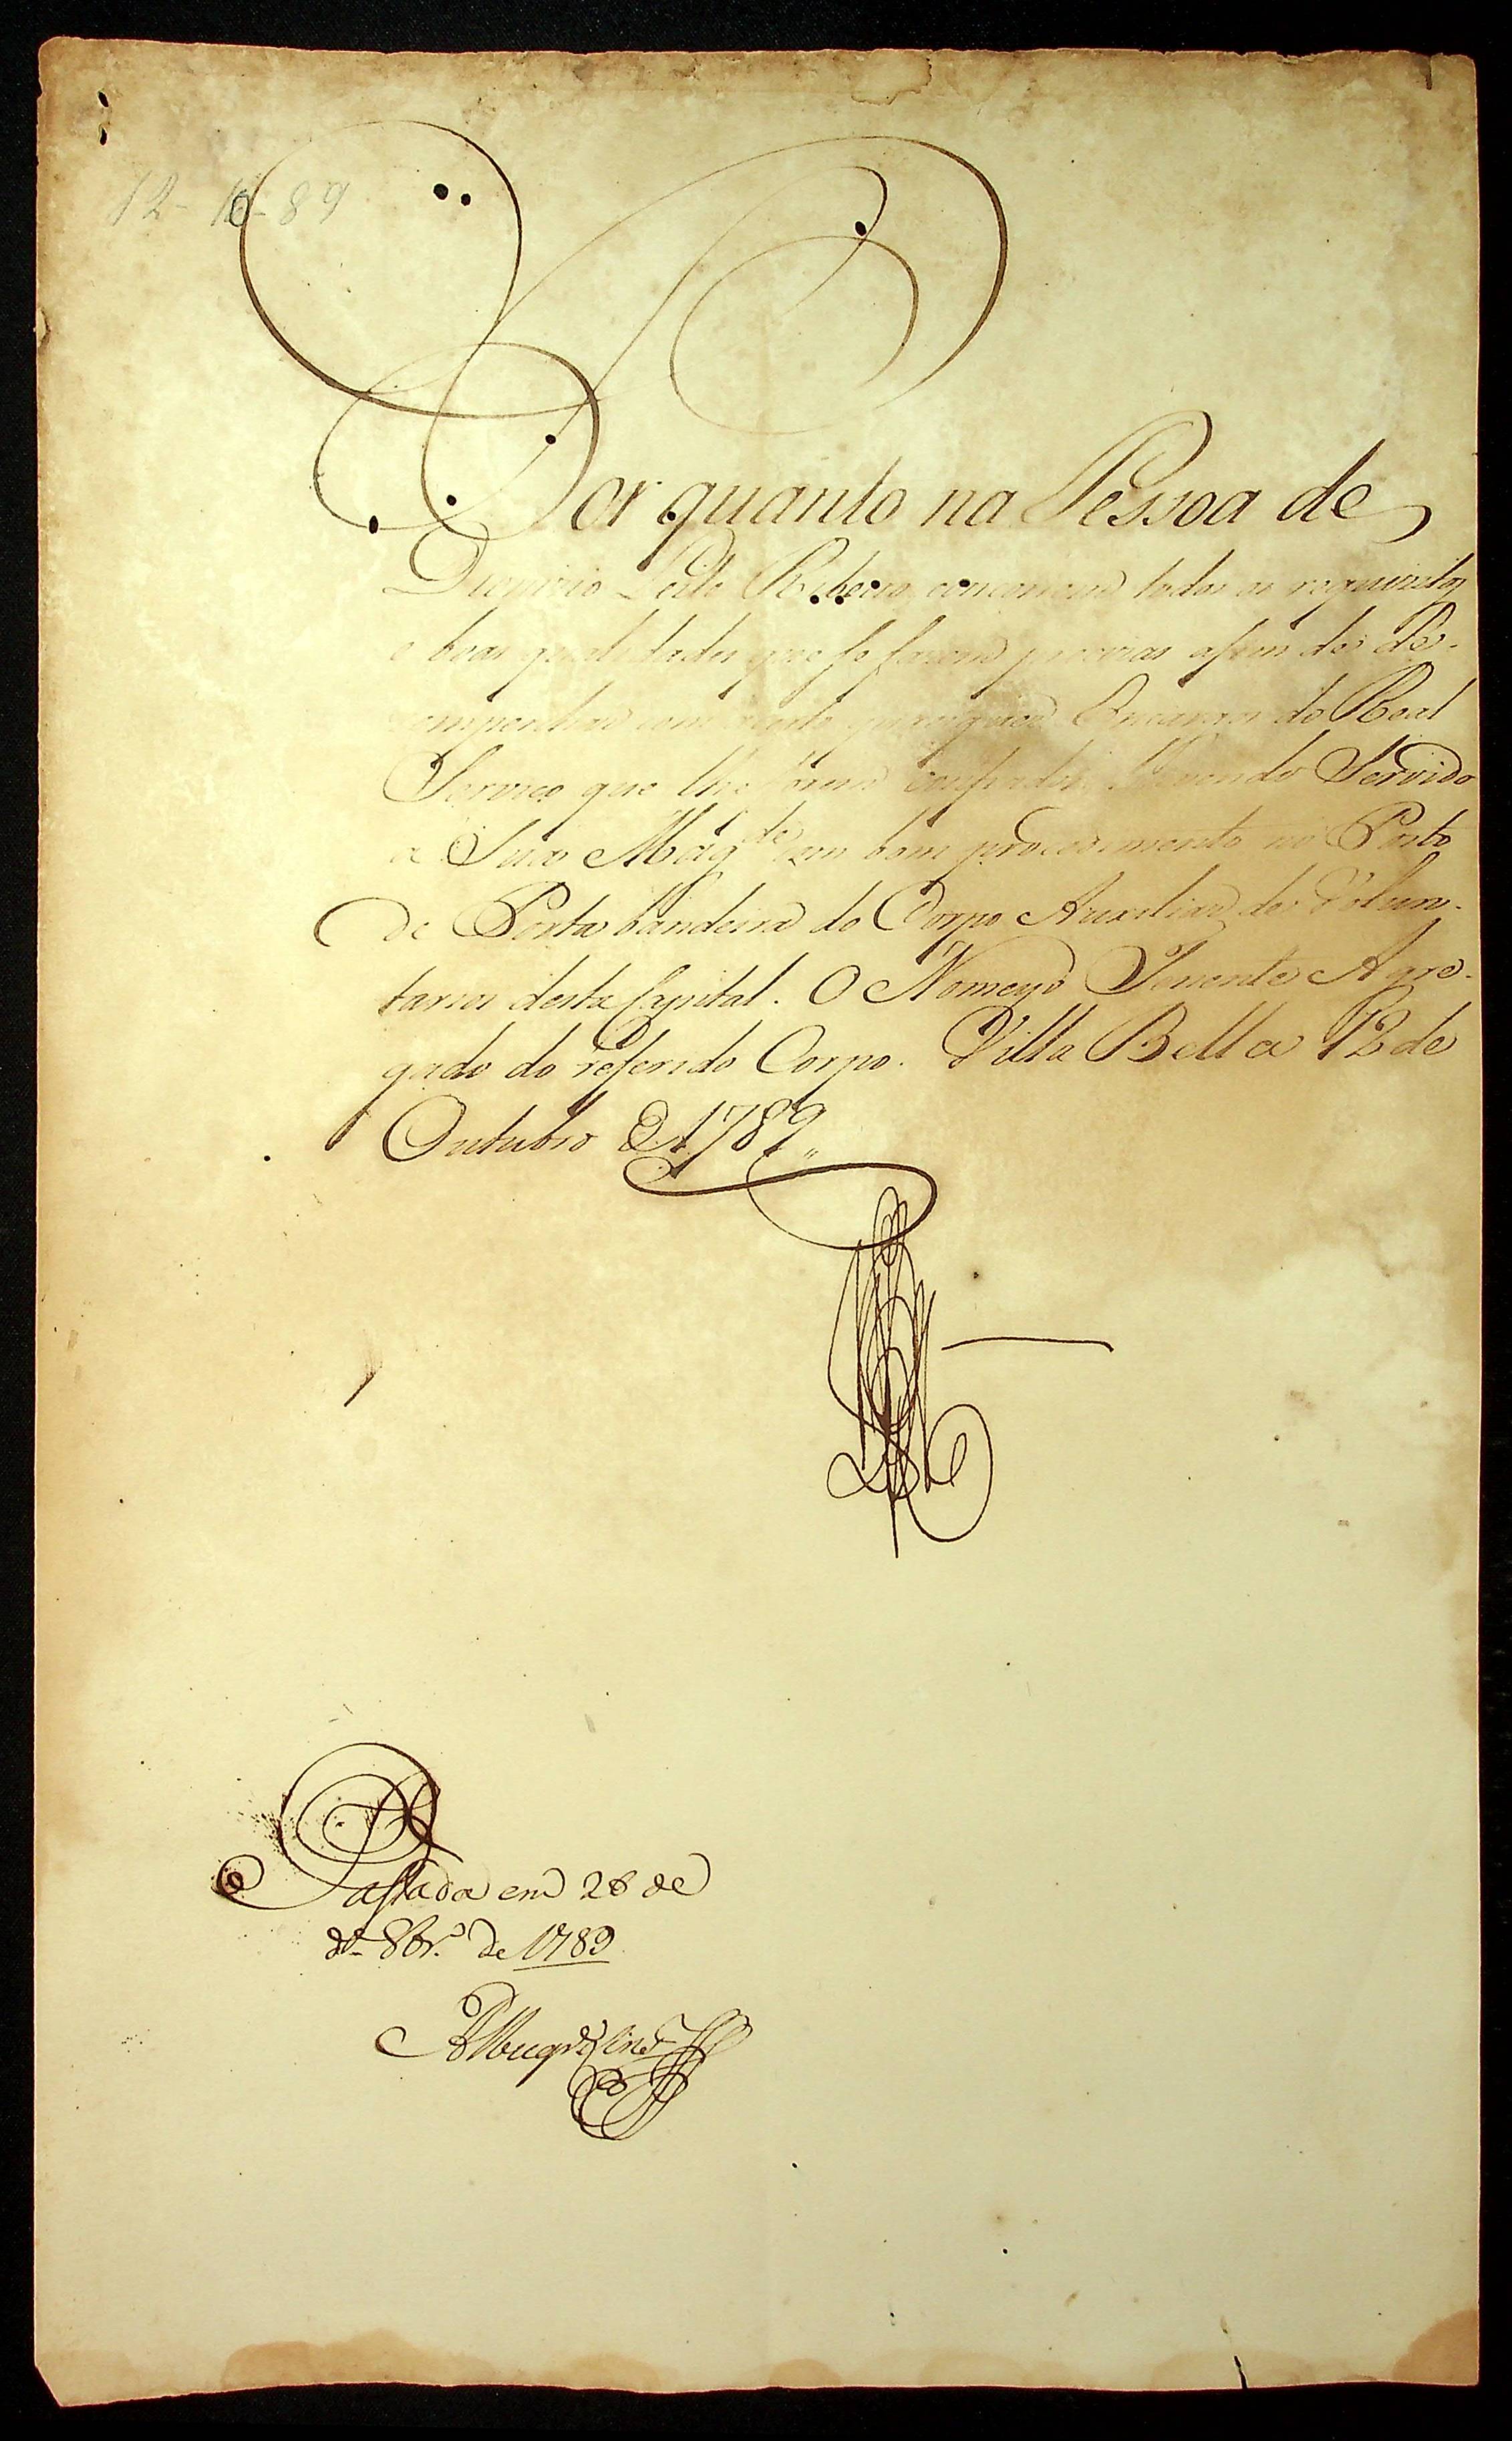 12-10-89
Por quanto na Pessoa de
Dionizio Leite Ribeiro concorrem todos os requizitos
e boas qualidades que se fazem precizas afim de de-
sempenhar com acerto quaesquer Encargos do Real
Serviço que lhe forem confiados. Havendo Servido
a Sua Magde com bom procedimento no Posto
de Porta bandeira do Corpo Auxiliar de Volun-
tarios desta Capital. O Nomeyo Tenente Agre-
gado do referido Corpo. Villa Bella 12 de
Outubro de 1789,,
Passada em 26 de
do 8br.o de 1789